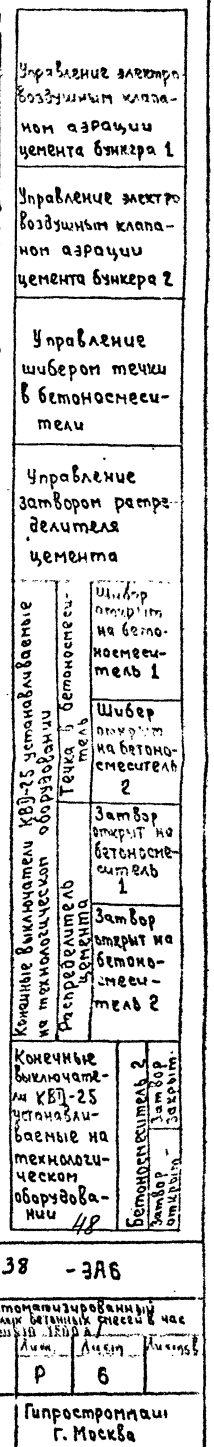 Управление электро
воздушным клапа-
ном аэрации
цемента бункера 1
Управление электро
воздушным клапа-
ном аэрации
цемента бункера 2
Управление
шибером течки
в бетоносмеси-
тели
Управление
затвором распре-
делителя
цемента
Конечные выключатели КВД-25 устанавливаемые
на технологическом оборудовании
Течка в бетоносмеси-
тель
Шибер
открыт
на бето-
носмеси-
тель 1
Шибер
открыт
на бетоно-
смеситель
2
Распределитель
цемента
Затвор
открыт на
бетоносме-
ситель
1
Затвор
открыт на
бетоно-
смеси-
тель 2
Конечные
выключате-
ли КВД-25
устанавли-
ваемые на
технологи-
ческом
оборудова-
нии
48
Бетоносмеситель 2
Затвор
закрыт.
Затвор -
открыт
38 -ЭА6
томатизированный
бетонных смесей в час
Лит. Лист Листов
Р 6
Гипростроммаш
г. Москва